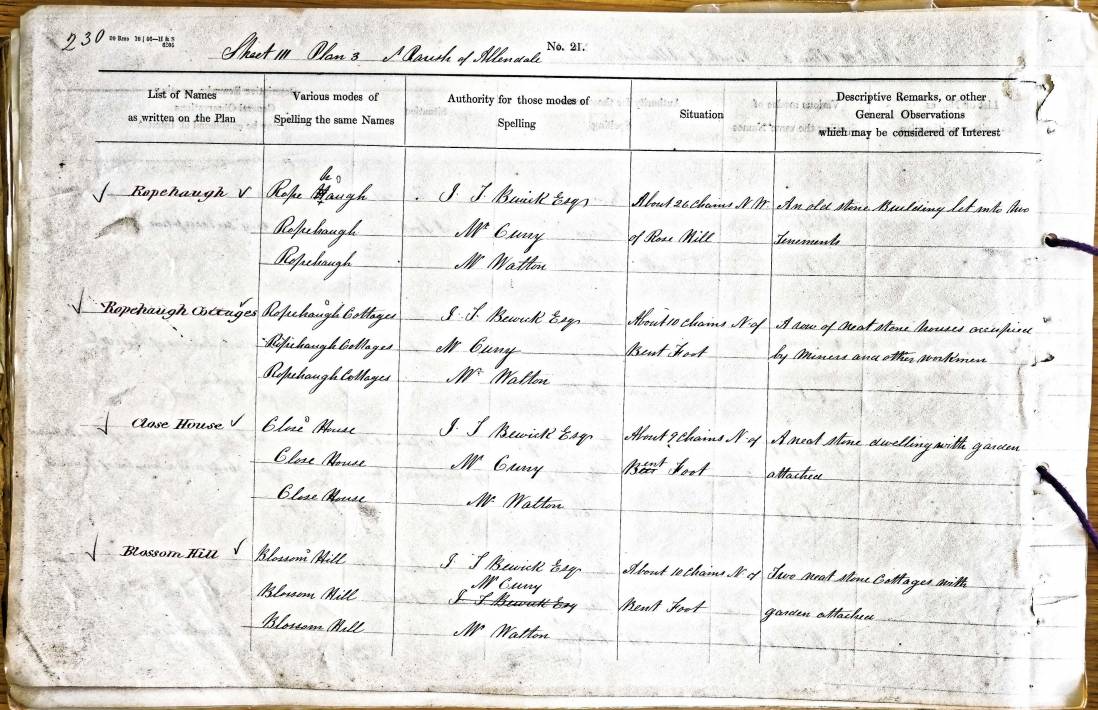 230
No. 21.
Sheet 111 Plan 3 Parish of Allendale
List of Names
as written on the Plan
Various modes of
Spelling the same Names
Authority for those modes of
Spelling
Situation
Descriptive Remarks, or other
General Observations
which may be considered of Interest
Ropehaugh
h
Rope Haugh
Ropehaugh
Ropehaugh
I. T. Bewick Esqr
Mr Curry
Mr Walton
About 26 chains N W
of Rose Hill
An old stone Building let into two
Tenements
Ropehaugh Cottages
Ropehaugh Cottages
Ropehaugh Cottages
Ropehaugh Cottages
I. T. Bewick Esqr
Mr Curry
Mr Walton
About 10 chains N of
Bent Foot
A row of neat stone houses occupied
by miners and other workmen
Close House
Close House
Close House
Close House
I. T. Bewick Esqr
Mr Curry
Mr Walton
About 9 chains N of
Bent Foot
A neat stone dwelling with garden
attached
Blossom Hill
Blossom Hill
Blossom Hill
Blossom Hill
I. T. Bewick Esqr
Mr Curry
I. T. Bewick Esq
Mr Walton
About 10 chains N of
Bent Foot
Two neat stone Cottages with
garden attached